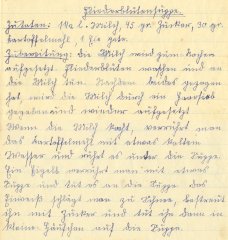 Fliederblütensuppe.
Zutaten: 1¼ l. Milch, 45 gr. Zucker, 30 gr.
Kartoffelmehl 1 Ei
Zubereitung: Die Milch wird zum Kochen
aufgesetzt Fliederblüten waschen und an
die Milch tun. Nachdem beides gezogen
hat, wird die Milch durch ein Haarsieb
gegossen und wieder aufgesetzt
Wenn die Milch kocht, verrührt man
das Kartoffelmehl mit etwas kalten
Wasser und rührt es unter die Suppe.
Ein Eigelb verrührt man mit etwas
Suppe und tut es an die Suppe das
Eiweiß schlägt man zu Schnee, bestreut
ihn mit Zucker und tut ihn dann in
kleine Häufchen auf die Suppe.